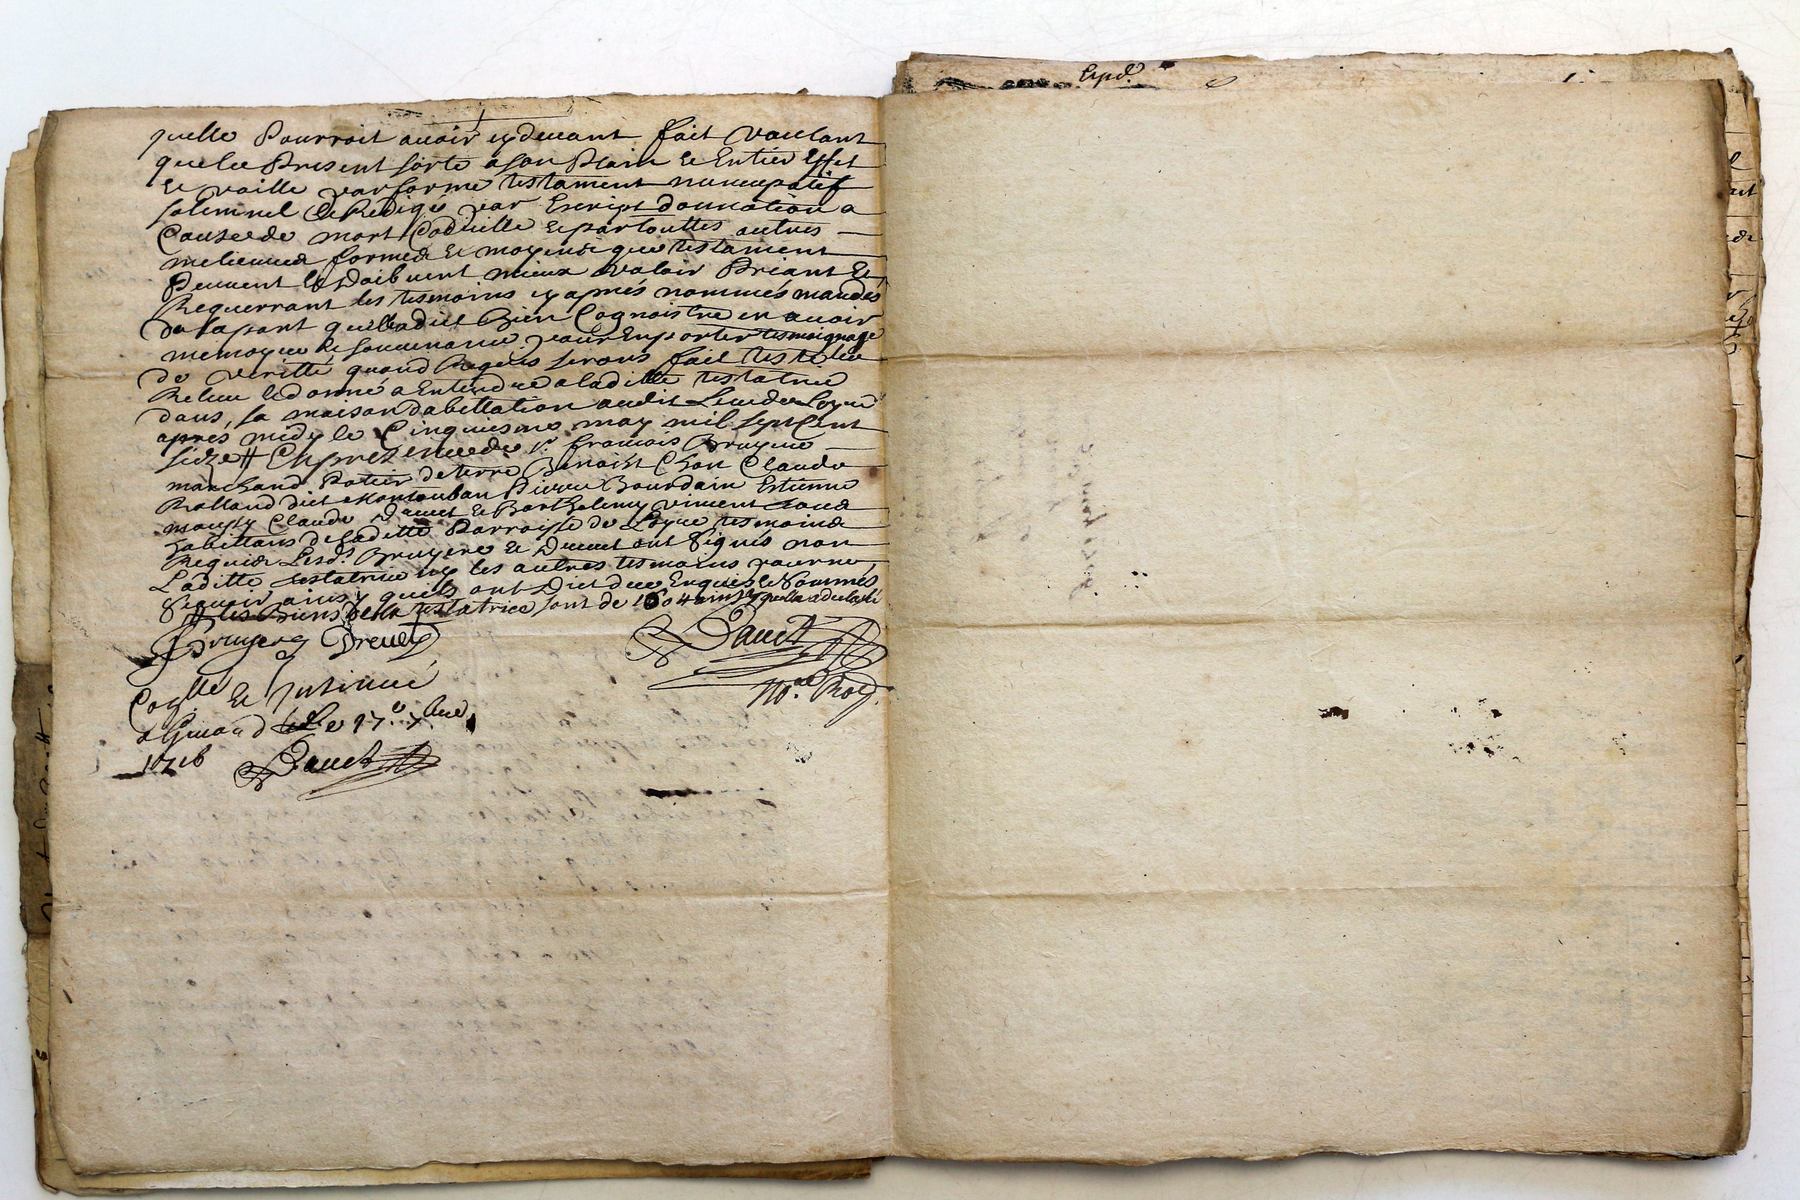 Expd.
quelle Pourroit auoir cydeuant fait Voullant
quelee Present sorte a son Plain Et Entier Effet
Et vaille par forme testament nuncupatif
solemnel Et Redigé par Escript donnation a
Cause de mort Codicille Et par touttes autres
meilieures formes Et moyens que testament
Peuuent Et Doibuent mieux Valoir Priant Et
Requerrant les tesmoins cy aprés nommés mandés
de sa part quelle a dict Bien Cognoistre en auoir
memoyre Et souuenance pour En porter tesmoignage
de Veritté quand Requis serons fait
Releu Et donné a Entendre a laditte testatrice
dans sa maison dabittation audit Lieu de
apres midy le Cinquiesme may mil sept Cent
seize # En presence de Sr. francois Bruyere
marchand Potier de terre Benoist Chon Claude
Rolland dict Montauban Pierre Bourdain Estienne
Claude Dreuet Et Barthelemy Vincent tous
habittans de laditte Parroisse de tesmoins
Requis Lesds. Bruyere Et Dreuet ont Signés non
Laditte testatrice ny les autres tesmoins pour ne
Scauoir ainsy quils ont Dict de ce Enquis Et Sommés
# les Biens de la testatrice sont de 1504 ainsy quelle a declaré
Bruyere Dreuet
Dauet
Nore. Roy.
Coqlle Et Insinué
a le 17e. 7bre
1716
Dauet